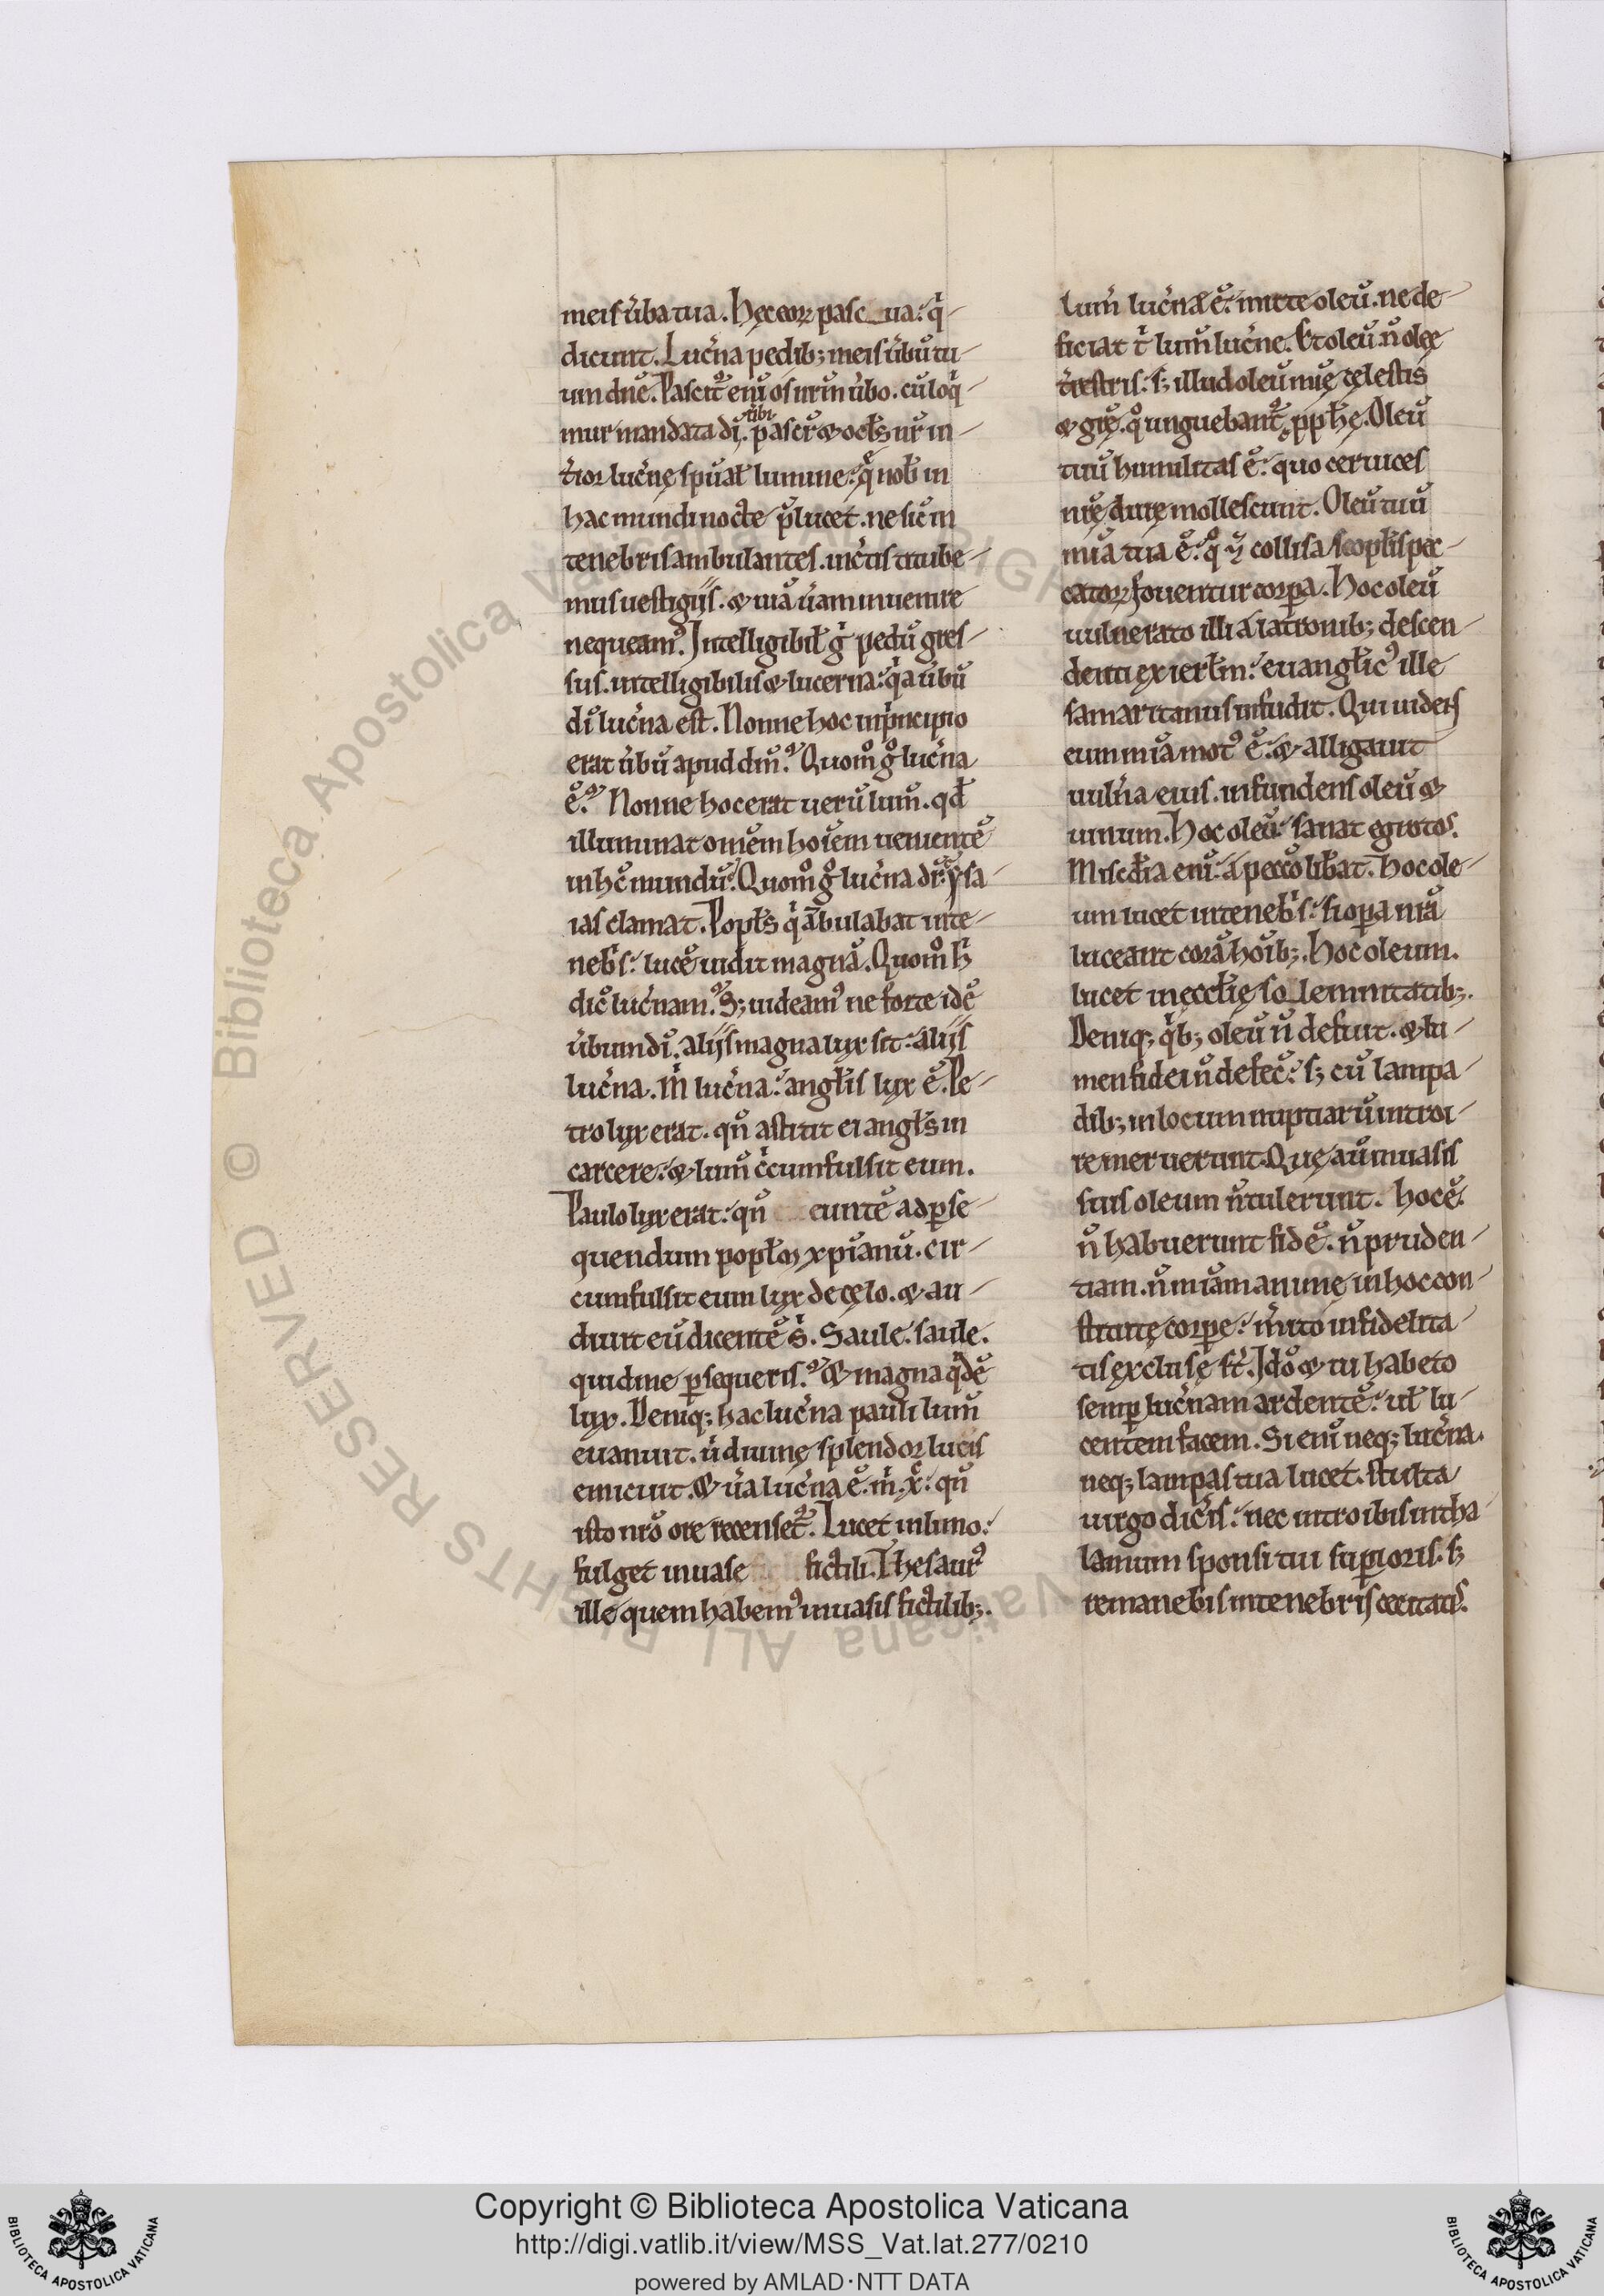 meis ůba tua. Hęc eoꝝ pascua: q̇
dicunt. Luc̓na pedib; meis ůbũ tu
um dñe. Pascit᷑ enĩ os nr̃m ůbo. cũ loq̇
mur mandata dĩ. ibi pascit᷑ & oc̃ls nr̃ in
t̓ior luc̓nę spũał lumine: q̃ nob̃ in
hac mundi nocte p̃lucet. ne sic̃ in
tenebris ambulantes. inc̓tis titube
mus uestigijs. & uiã ůam inuenire
nequeam᷒. Intelligibił g̊ pedũ gres
sus. intelligibilis & lucerna: q̇a ůbũ
dĩ luc̓na est. Nonne hoc inp̓ncipio
erat ůbũ apud dm̃? Quom̊ g̊ luc̓na
ẽ? Nonne hoc erat uerũ lum̃. qd̃
illuminat om̃em hoĩem uenientẽ
in hc̃ mundũ? Quom̊ g̊ luc̓na dĩ: ysa
ias clamat. Popłs q̇ ãbulabat inte
neb̓s: lucẽ uidit magnã. Quom̊ h̓
dic̃ luc̓nam? S; uideam᷒ ne forte idẽ
ůbum dĩ. alijs magna lux sit: alijs
luc̓na. m̓ luc̓na: angłis lux ẽ. Pe
tro lux erat. qñ astitit ei angłs in
carcere: & lum̃ c̓cumfulsit eum.
Paulo lux erat: qñ euntẽ ad ꝑse
quendum popłos xp̃ianũ. cir
cumfulsit eum lux de cęlo. & au
diuit eũ dicentẽ s̓. Saule. saule.
quid me ꝑsequeris? & magna q̇dẽ
lux. Deniq; hac luc̓na pauli lum̃
euanuit. ů diuinę splendor lucis
emicuit. & ůa luc̓na ẽ. m̓. xp̃c: qñ
isto nr̃o ore recenset᷑. Lucet in limo:
fulget in uase fictili. Thesaur᷒
ille quem habem᷒ in uasis fictilib;.
lum̃ luc̓næ ẽ: mitte oleũ. ne de
ficiat t̓ lum̃ luc̓ne. Et oleũ. ñ oleę
t̓restris: s; illud oleũ mĩę cęlestis
& gr̃ę. q̊ unguebant᷑ ꝓphę. Oleũ
tuũ humilitas ẽ: quo ceruices
nr̃ę durę mollescunt. Oleũ tuũ
mĩa tua ẽ: q̊ collisa scopłis pec
catoꝝ fouentur corꝑa. Hoc oleũ
uulnerato illi a latronib; descen
denti ex ierłm: euangłic᷒ ille
samaritanus infudit. Qui uidens
eum mĩa mot᷒ ẽ: & alligauit
uuln̓a eius. infundens oleũ &
uinum. Hoc oleũ: sanat egrotos.
Miscd̓ia enĩ: a pecc̃o łibat. Hoc ole
um lucet in teneb̓s: si oꝑa nr̃a
luceant corã hoĩb;. Hoc oleum.
lucet in ęccłię solemnitatib;.
Deniq; q̇b; oleũ ñ defuit. & lu
men fidei ñ defec̃: s; cũ lampa
dib; in locum nuptiarũ introi
re meruerunt. Quę aũ in uasis
suis oleum ñ tulerunt. hoc ẽ
ñ habuerunt fidẽ. ñ pruden
tiam. ñ mĩam animę in hoc con
stitutę corꝑe: m̓ito infidelita
tis exclusę st̃. Id̊o & tu habeto
semꝑ luc̓nam ardentẽ: uł lu
centem facem. Si enĩ neq; luc̓na.
neq; lampas tua lucet. stulta
uirgo dic̓is: nec introibis in tha
lamum sponsi tui suꝑioris. s;
remanebis in tenebris cecitatis.
© Biblioteca Apostolica Vaticana ALL RIGHTS RESERVED
Copyright © Biblioteca Apostolica Vaticana
http://digi.vatlib.it/view/MSS_Vat.lat.277/0210
powered by AMLAD·NTT DATA
BIBLIOTECA APOSTOLICA VATICANA
BIBLIOTECA APOSTOLICA VATICANA